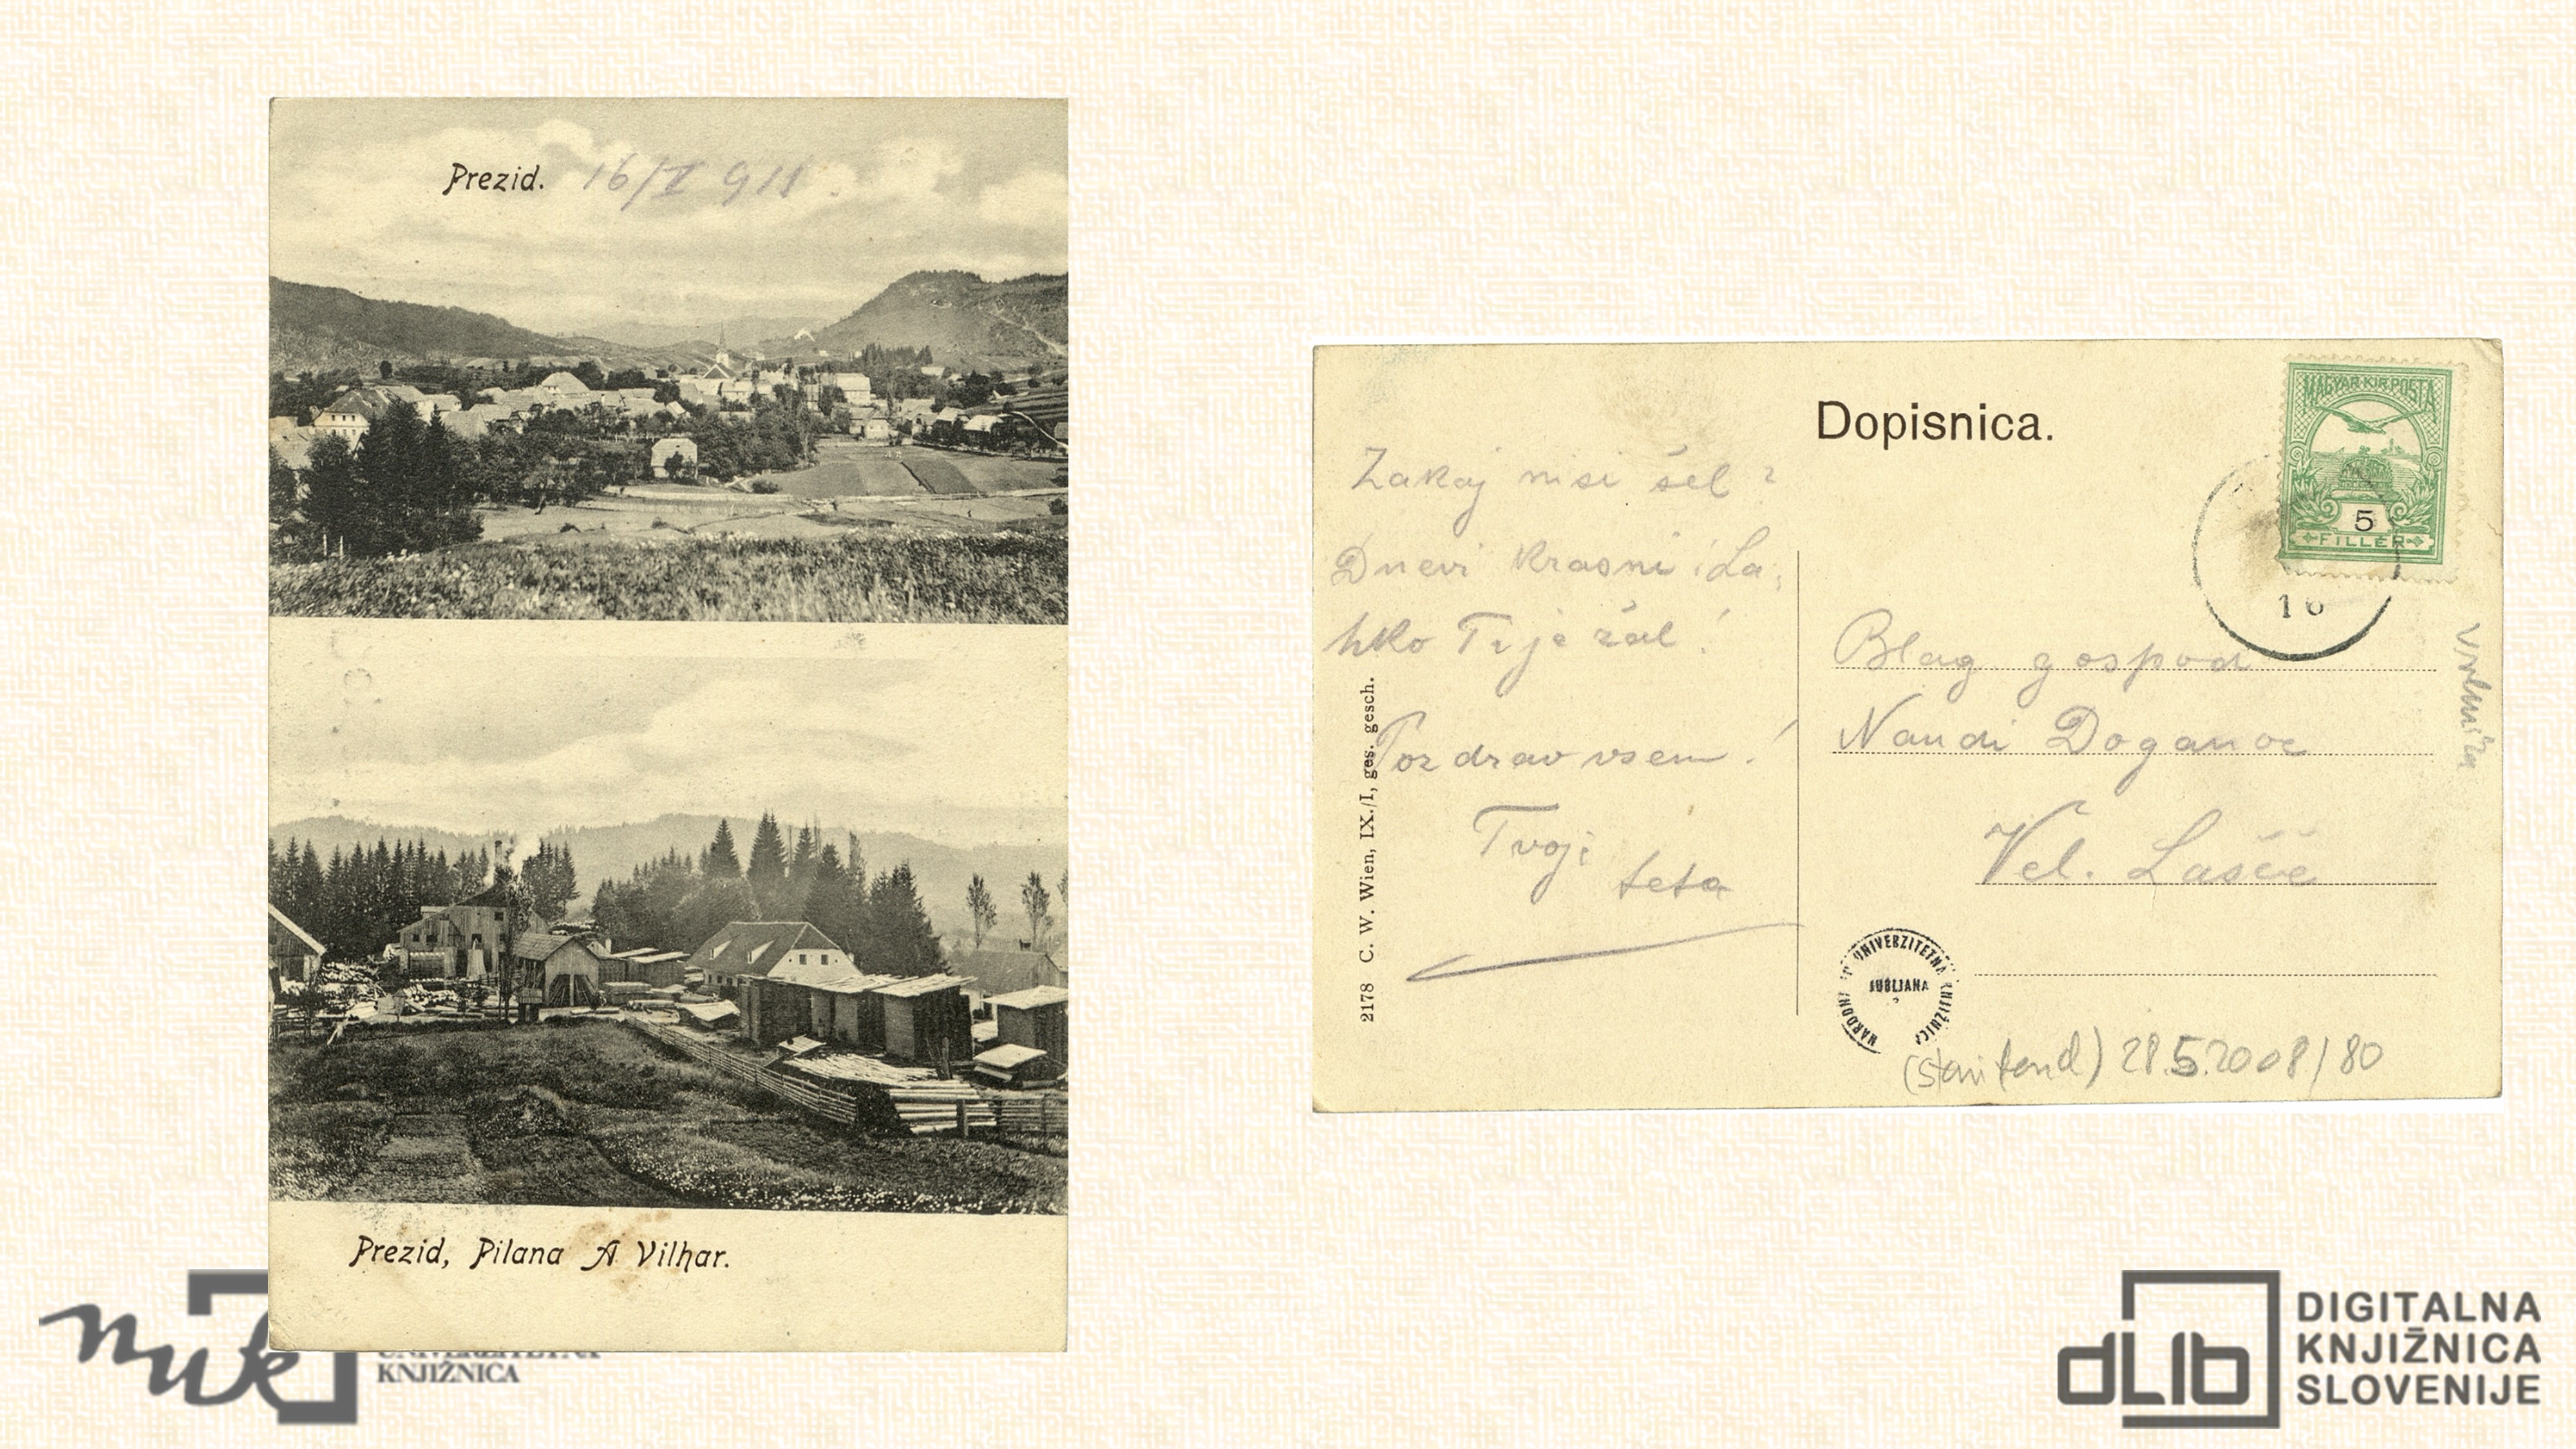 Prezid. 16/V 911
Prezid, Pilana A Vilhar.
Dopisnica.
MAGYAR KIR. POSTA
5
FILLÉR
16
Zakaj nisi šel?
Dnevi krasni! La-
hko Ti je žal!
Pozdrav vsem!
Tvoji
teta
2178 C. W. Wien, IX./I, ges. gesch.
Blag. gospod
Nandi Doganoc
Vel. Lašče
NARODNA UNIVERZITETNA KNJIŽNICA
LJUBLJANA
(stari fond) 28.5.2008/80
nuk
KNJIŽNICA
dLib
DIGITALNA
KNJIŽNICA
SLOVENIJE